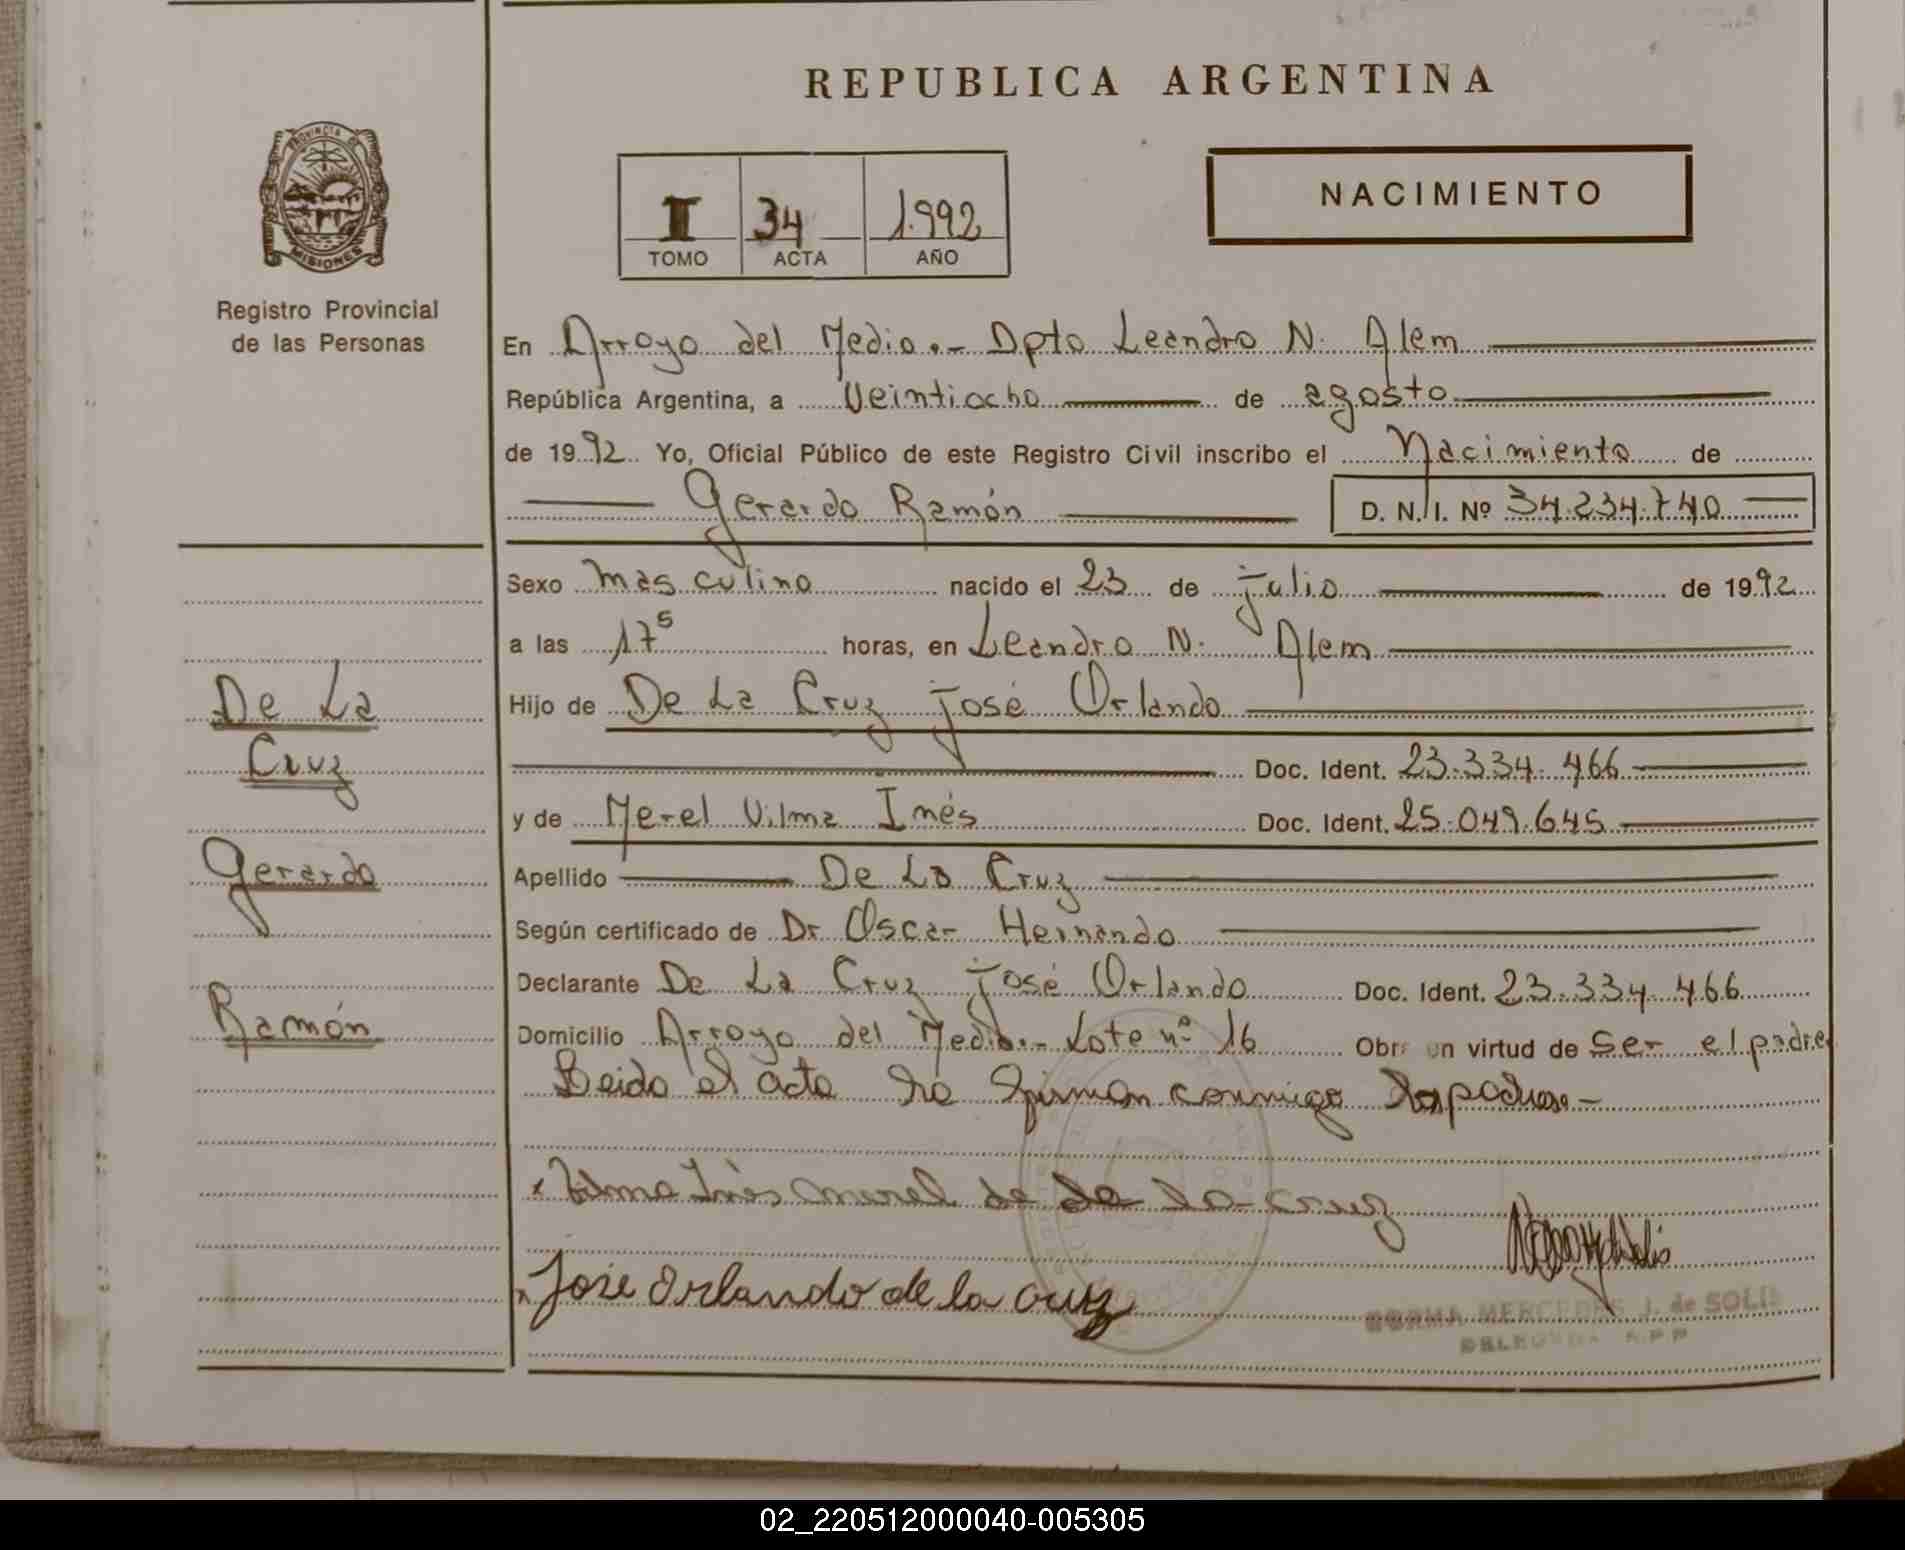 REPUBLICA ARGENTINA
PROVINCIA DE
MISIONES
Registro Provincial
de las Personas
I 34 1.992
TOMO ACTA AÑO
NACIMIENTO
En Arroyo del Medio.- Dpto Leandro N. Alem
República Argentina, a veintiocho de agosto
de 1992 Yo, Oficial Público de este Registro Civil inscribo el Nacimiento de
Gerardo Ramón D. N. I. Nº 34.234.740
Sexo masculino nacido el 23 de julio de 1992
a las 17⁵ horas, en Leandro N. Alem
Hijo de De La Cruz José Orlando
Doc. Ident. 23.334.466
y de Merel Vilma Inés Doc. Ident. 25.049.645
Apellido De La Cruz
Según certificado de Dr Oscar Hernando
Declarante De La Cruz José Orlando Doc. Ident. 23.334.466
Domicilio Arroyo del Medio.- Lote nº 16 Obra en virtud de ser el padre
Leida el acta la firman conmigo los padres.-
De La
Cruz
Gerardo
Ramón
x Vilma Inés Merel de de la cruz
x José Orlando de la cruz
NORMA MERCEDES J. de SOLIS
02_220512000040-005305